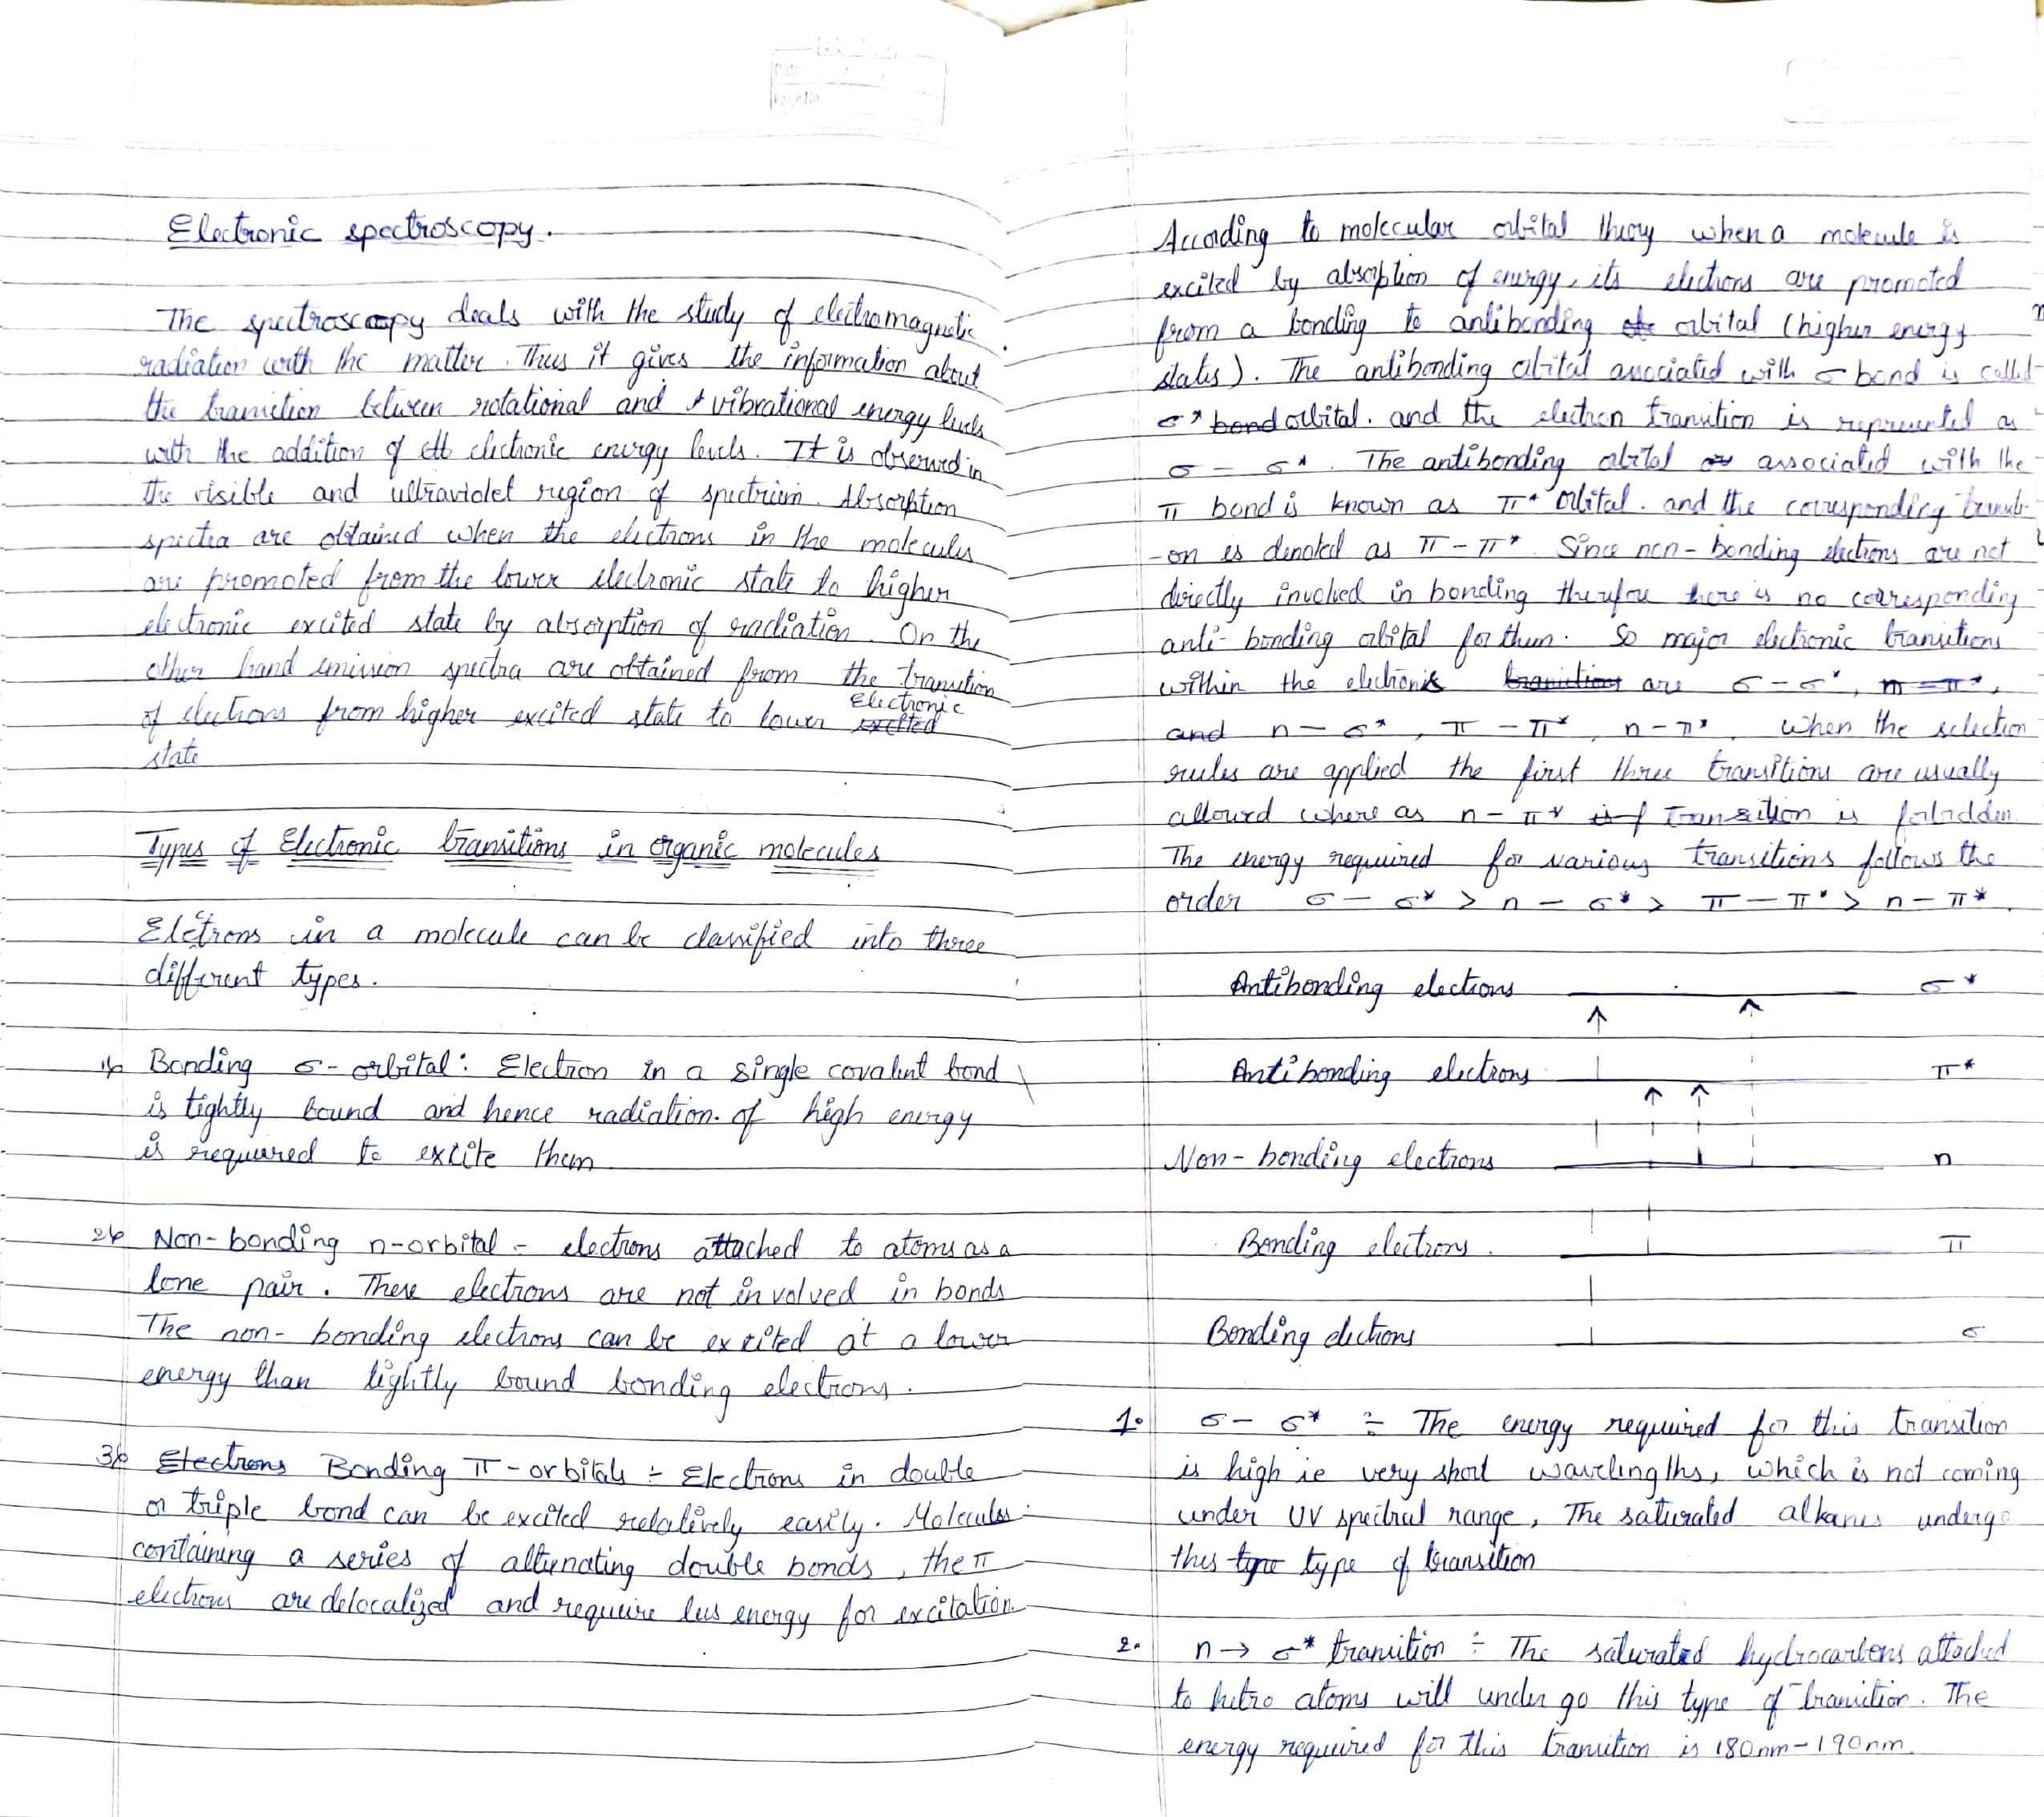 Date
Page No
Electronic spectroscopy.
The spectroscopy deals with the study of electromagnetic
radiation with the matter. Thus it gives the information about
the transition between rotational and vibrational energy levels
with the addition of electronic energy levels. It is observed in
the visible and ultraviolet region of spectrum. Absorption
spectra are obtained when the electrons in the molecules
are promoted from the lower electronic state to higher
electronic excited state by absorption of radiation. On the
other hand emission spectra are obtained from the transition
of electrons from higher excited state to lower Electronic excited
state
Types of Electronic transitions in organic molecules
Eletrons in a molecule can be classified into three
different types.
1) Bonding σ- orbital: Electron in a single covalent bond
is tightly bound and hence radiation of high energy
is requared to excite them
2) Non-bonding n-orbital - electrons attached to atoms as a
lone pair. These electrons are not involved in bonds
The non-bonding electrons can be excited at a lower
energy than tightly bound bonding electrons.
3) Electrons Bonding π-orbitals ÷ Electrons in double
or triple bond can be excited relatively easily. Molecules
containing a series of alternating double bonds, the π
electrons are delocalized and requuire less energy for excitation.
According to molecular orbital theory when a molecule is
excited by absorption of energy, its electrons are promoted
from a bonding to antibonding orbital (higher energy
states). The antibonding orbital associated with σ bond is called
σ* bond orbital. and the electron transition is represented as
σ - σ*. The antibonding orbital associated with the
π bond is known as π* orbital. and the corresponding transiti-
-on is denoted as π - π*. Since non-bonding electrons are not
directly involved in bonding therefore there is no corresponding
anti-bonding orbital for them. So major electronic transitions
within the electronic transitions are σ - σ*, n - π*,
and n - σ*, π - π*, n - π*. When the selection
rules are applied the first three transitions are usually
allowed where as n - π* transition is forbidden.
The energy requuired for various transitions follows the
order σ - σ* > n - σ* > π - π* > n - π*.
Antibonding elections σ*
Antibonding elections π*
Non-bonding elections n
Bonding elections. π
Bonding elections σ
1. σ - σ* ÷ The energy requuired for this transition
is high ie very short wavelengths, which is not coming
under UV spectral range, The saturated alkanes undergo
this type type of transition
2. n → σ* transition ÷ The saturated hydrocarbons attached
to hetro atoms will under go this type of transition. The
energy requuired for this transition is 180nm-190nm.